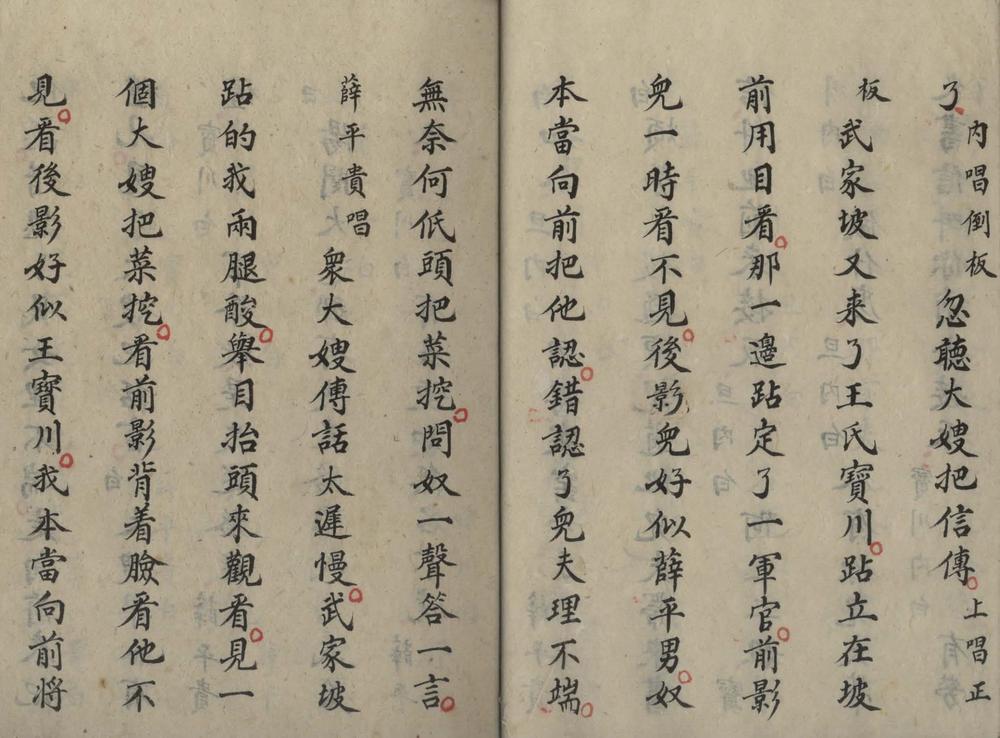 了 内唱倒板 忽聽大嫂把信傳。上唱正
板 武家坡又来了王氏寳川。跕立在坡
前用目看。那一邉跕定了一軍官。前影
児一時看不見。後影児好似薛平男。奴
本當向前把他認。錯認了児夫理不端。
無奈何低頭把菜挖。問奴一聲答一言。
薛平貴唱 衆大嫂傳話太遲慢。武家坡
跕的我兩腿酸。舉目抬頭來觀看。見一
個大嫂把菜挖。看前影背着臉看他不
見。看後影好似王寳川。我本當向前将